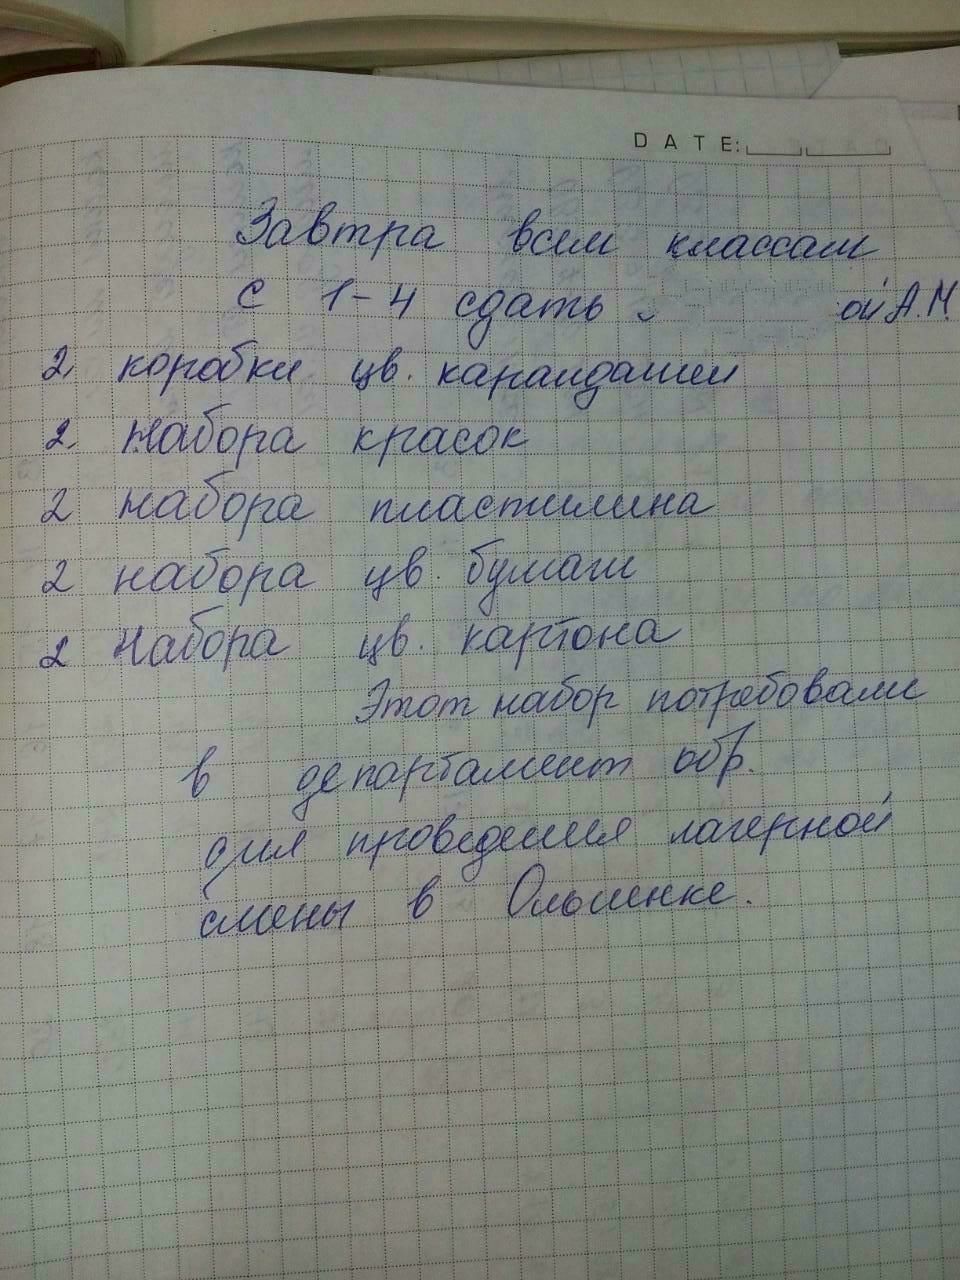 DATE:
Завтра всем классам
с 1-4 сдать ой А.М.
2. коробки цв. карандашей
2. набора красок
2 набора пластилина
2 набора цв. бумаги
2 набора цв. картона
Этот набор потребовали
в департамент обр.
для проведения лагерной
смены в Ольшенке.